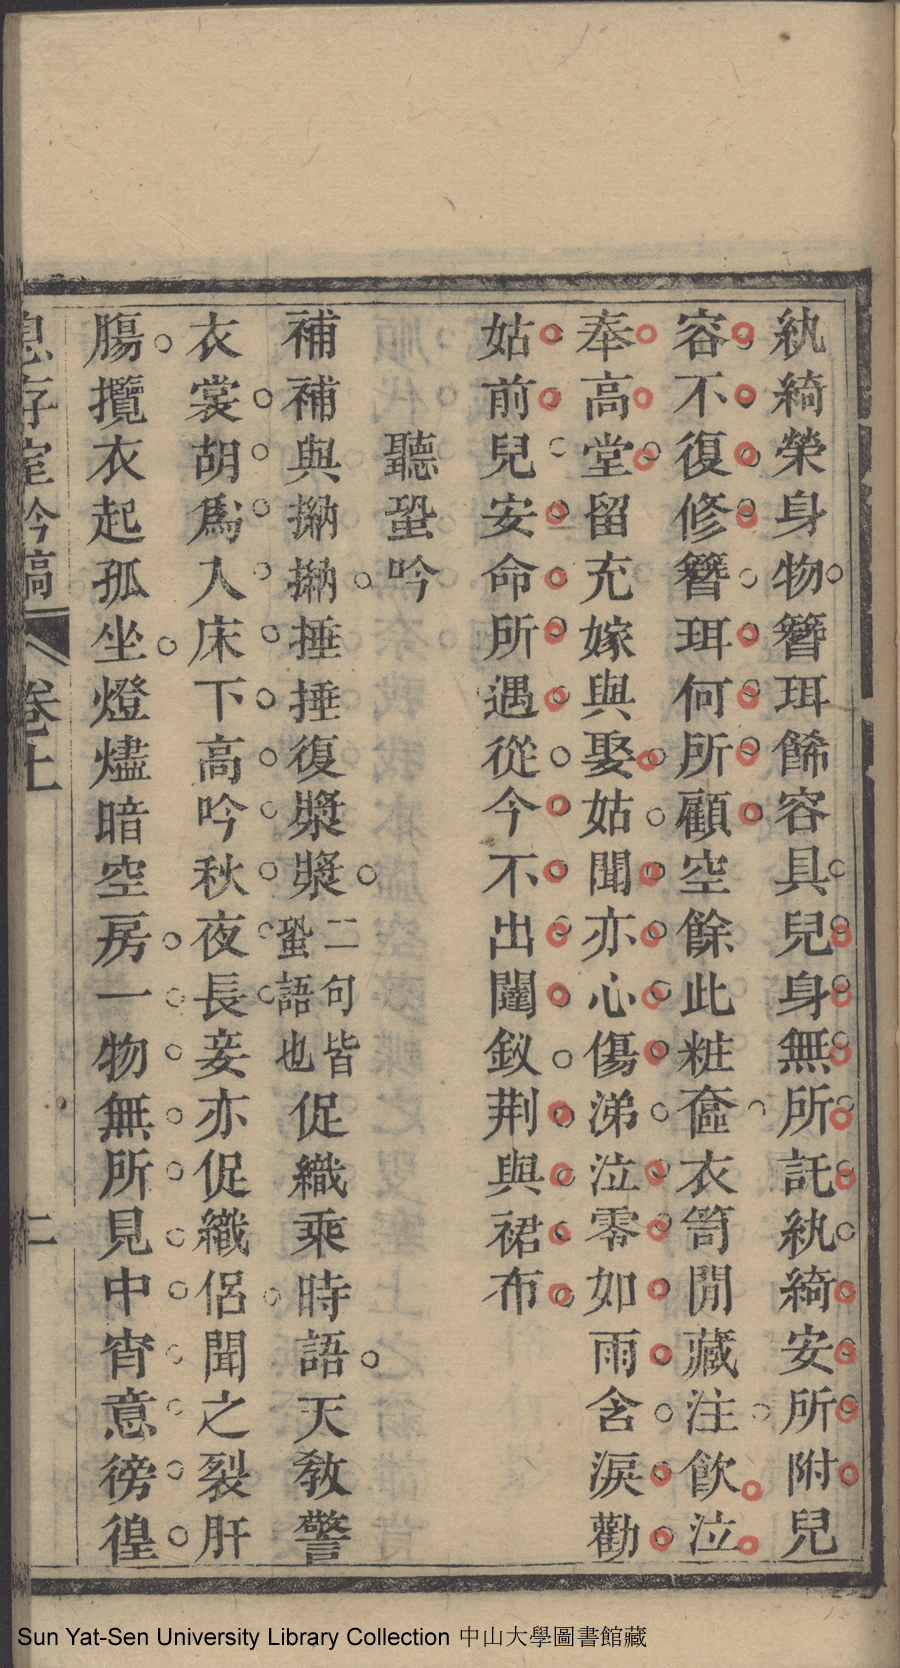 紈綺榮身物簪珥餙容具兒身無所託紈綺安所附兒
容不復修簪珥何所顧空餘此粧奩衣笥閒藏注飮泣
奉高堂留充嫁與娶姑聞亦心傷涕泣零如雨含淚勸
姑前兒安命所遇從今不出闥釵荆與裙布
聽蛩吟
補補與㧬㧬捶捶復漿漿二句皆蛩語也促織乘時語天敎警
衣裳胡爲人床下高吟秋夜長妾亦促織侶聞之裂肝
腸攬衣起孤坐燈燼暗空房一物無所見中宵意徬徨
息存室吟稿 卷上 二
Sun Yat-Sen University Library Collection 中山大學圖書館藏